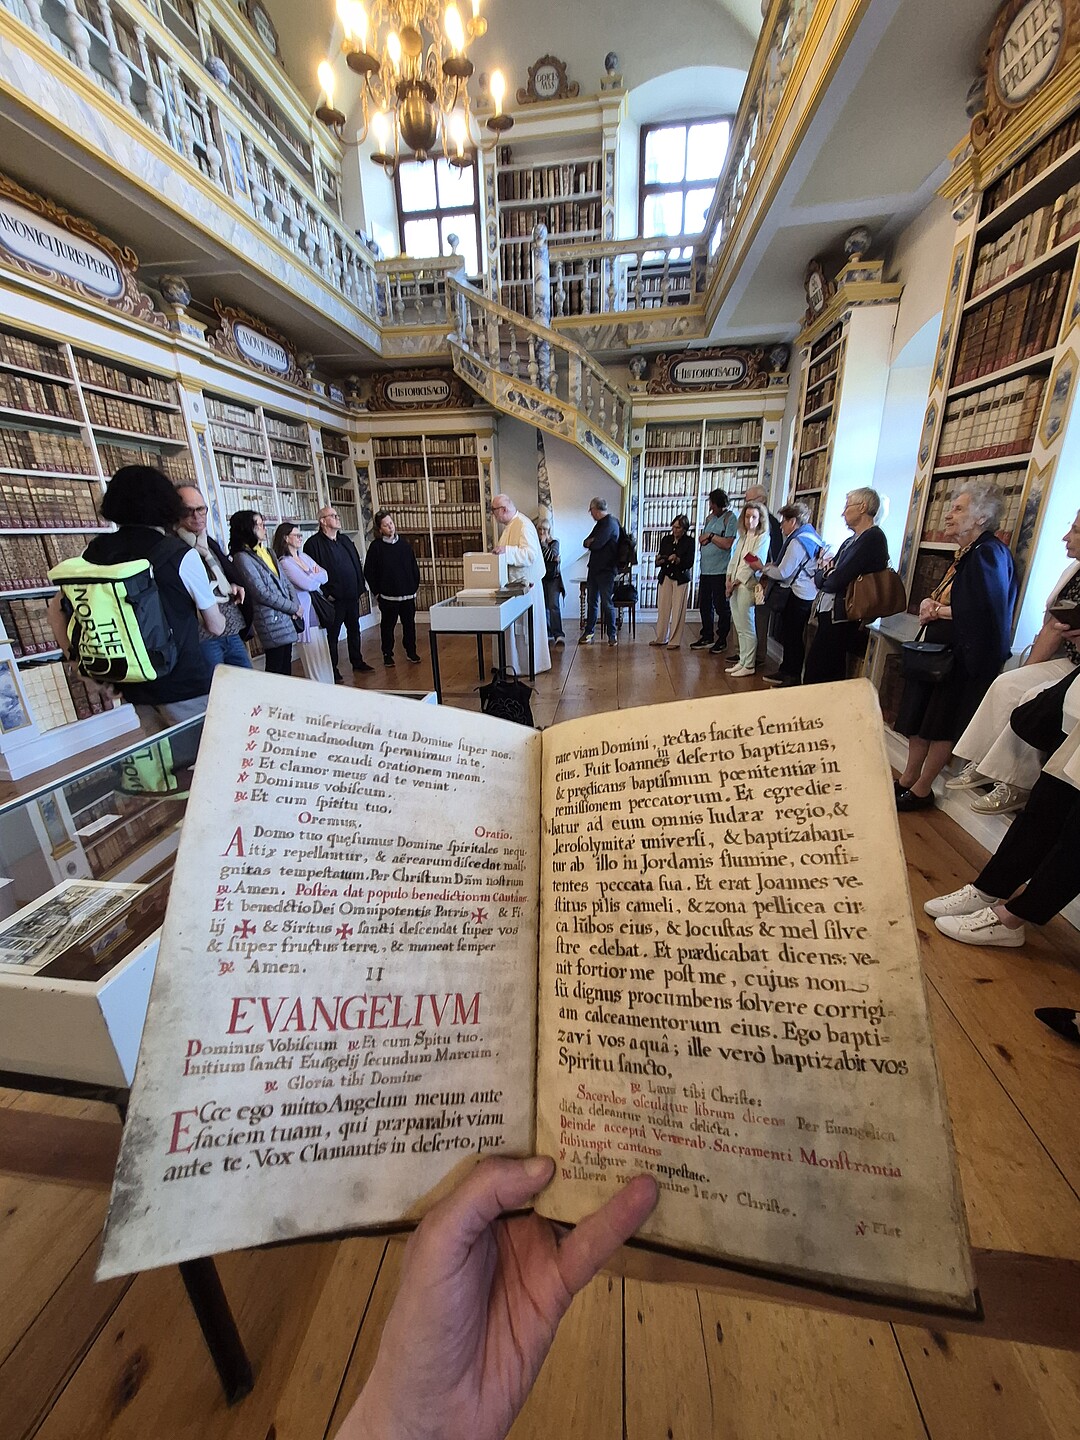 INTER
PRETES
CANONICI JURIS PERITI
CANON. JURIS PERITI
HISTORICI SACRI
HISTORICI SACRI
THE
NORTH
℣ Fiat misericordia tua Domine super nos.
℟ quemadmodum speravimus in te.
℣ Domine exaudi orationem meam.
℟ Et clamor meus ad te veniat.
℣ Dominus vobiscum.
℟ Et cum spiritu tuo.
Oremus. Oratio.
A Domo tuo quęsumus Domine spiritales nequi-
itiæ repellantur, & aërearum discedat mali-
gnitas tempestatum. Per Christum Dn̄m nostrum
℟. Amen. Postea dat populo benedictionem Cantans.
Et benedictio Dei Omnipotentis Patris ✠ & Fi
lij ✠ & Siritus ✠ sancti descendat super vos
& super fructus terrę, & maneat semper
℟ Amen.
II
EVANGELIVM
Dominus Vobiscum ℟ Et cum Spitu tuo.
Initium sancti Euāgelij secundum Marcum.
℟ Gloria tibi Domine
ECce ego mitto Angelum meum ante
faciem tuam, qui præparabit viam
ante te. Vox Clamantis in deserto, par-
rate viam Domini, rectas facite semitas
eius. Fuit Ioannes in deserto baptizans,
& prędicans baptismum pœnitentiæ in
remissionem peccatorum. Et egredie=
batur ad eum omnis Iudææ regio, &
Jerosolymitæ universi, & baptizaban=
tur ab illo in Jordanis flumine, confi=
tentes peccata sua. Et erat Joannes ve-
stitus pilis cameli, & zona pellicea cir-
ca lūbos eius, & locustas & mel silve
stre edebat. Et prædicabat dicens: ve-
nit fortior me post me, cujus non
sū dignus procumbens solvere corrigi=
am calceamentorum eius. Ego bapti=
zavi vos aquâ; ille verò baptizabit vos
Spiritu sancto,
℟ Laus tibi Christe:
Sacerdos osculatur librum dicens Per Euangelica
dicta deleantur nostra delicta.
Deinde acceptâ Venerab. Sacramenti Monstrantia
subiungit cantans
℣ A fulgure & tempestate.
℟ libera nos Domine IESV Christe.
℣ Fiat